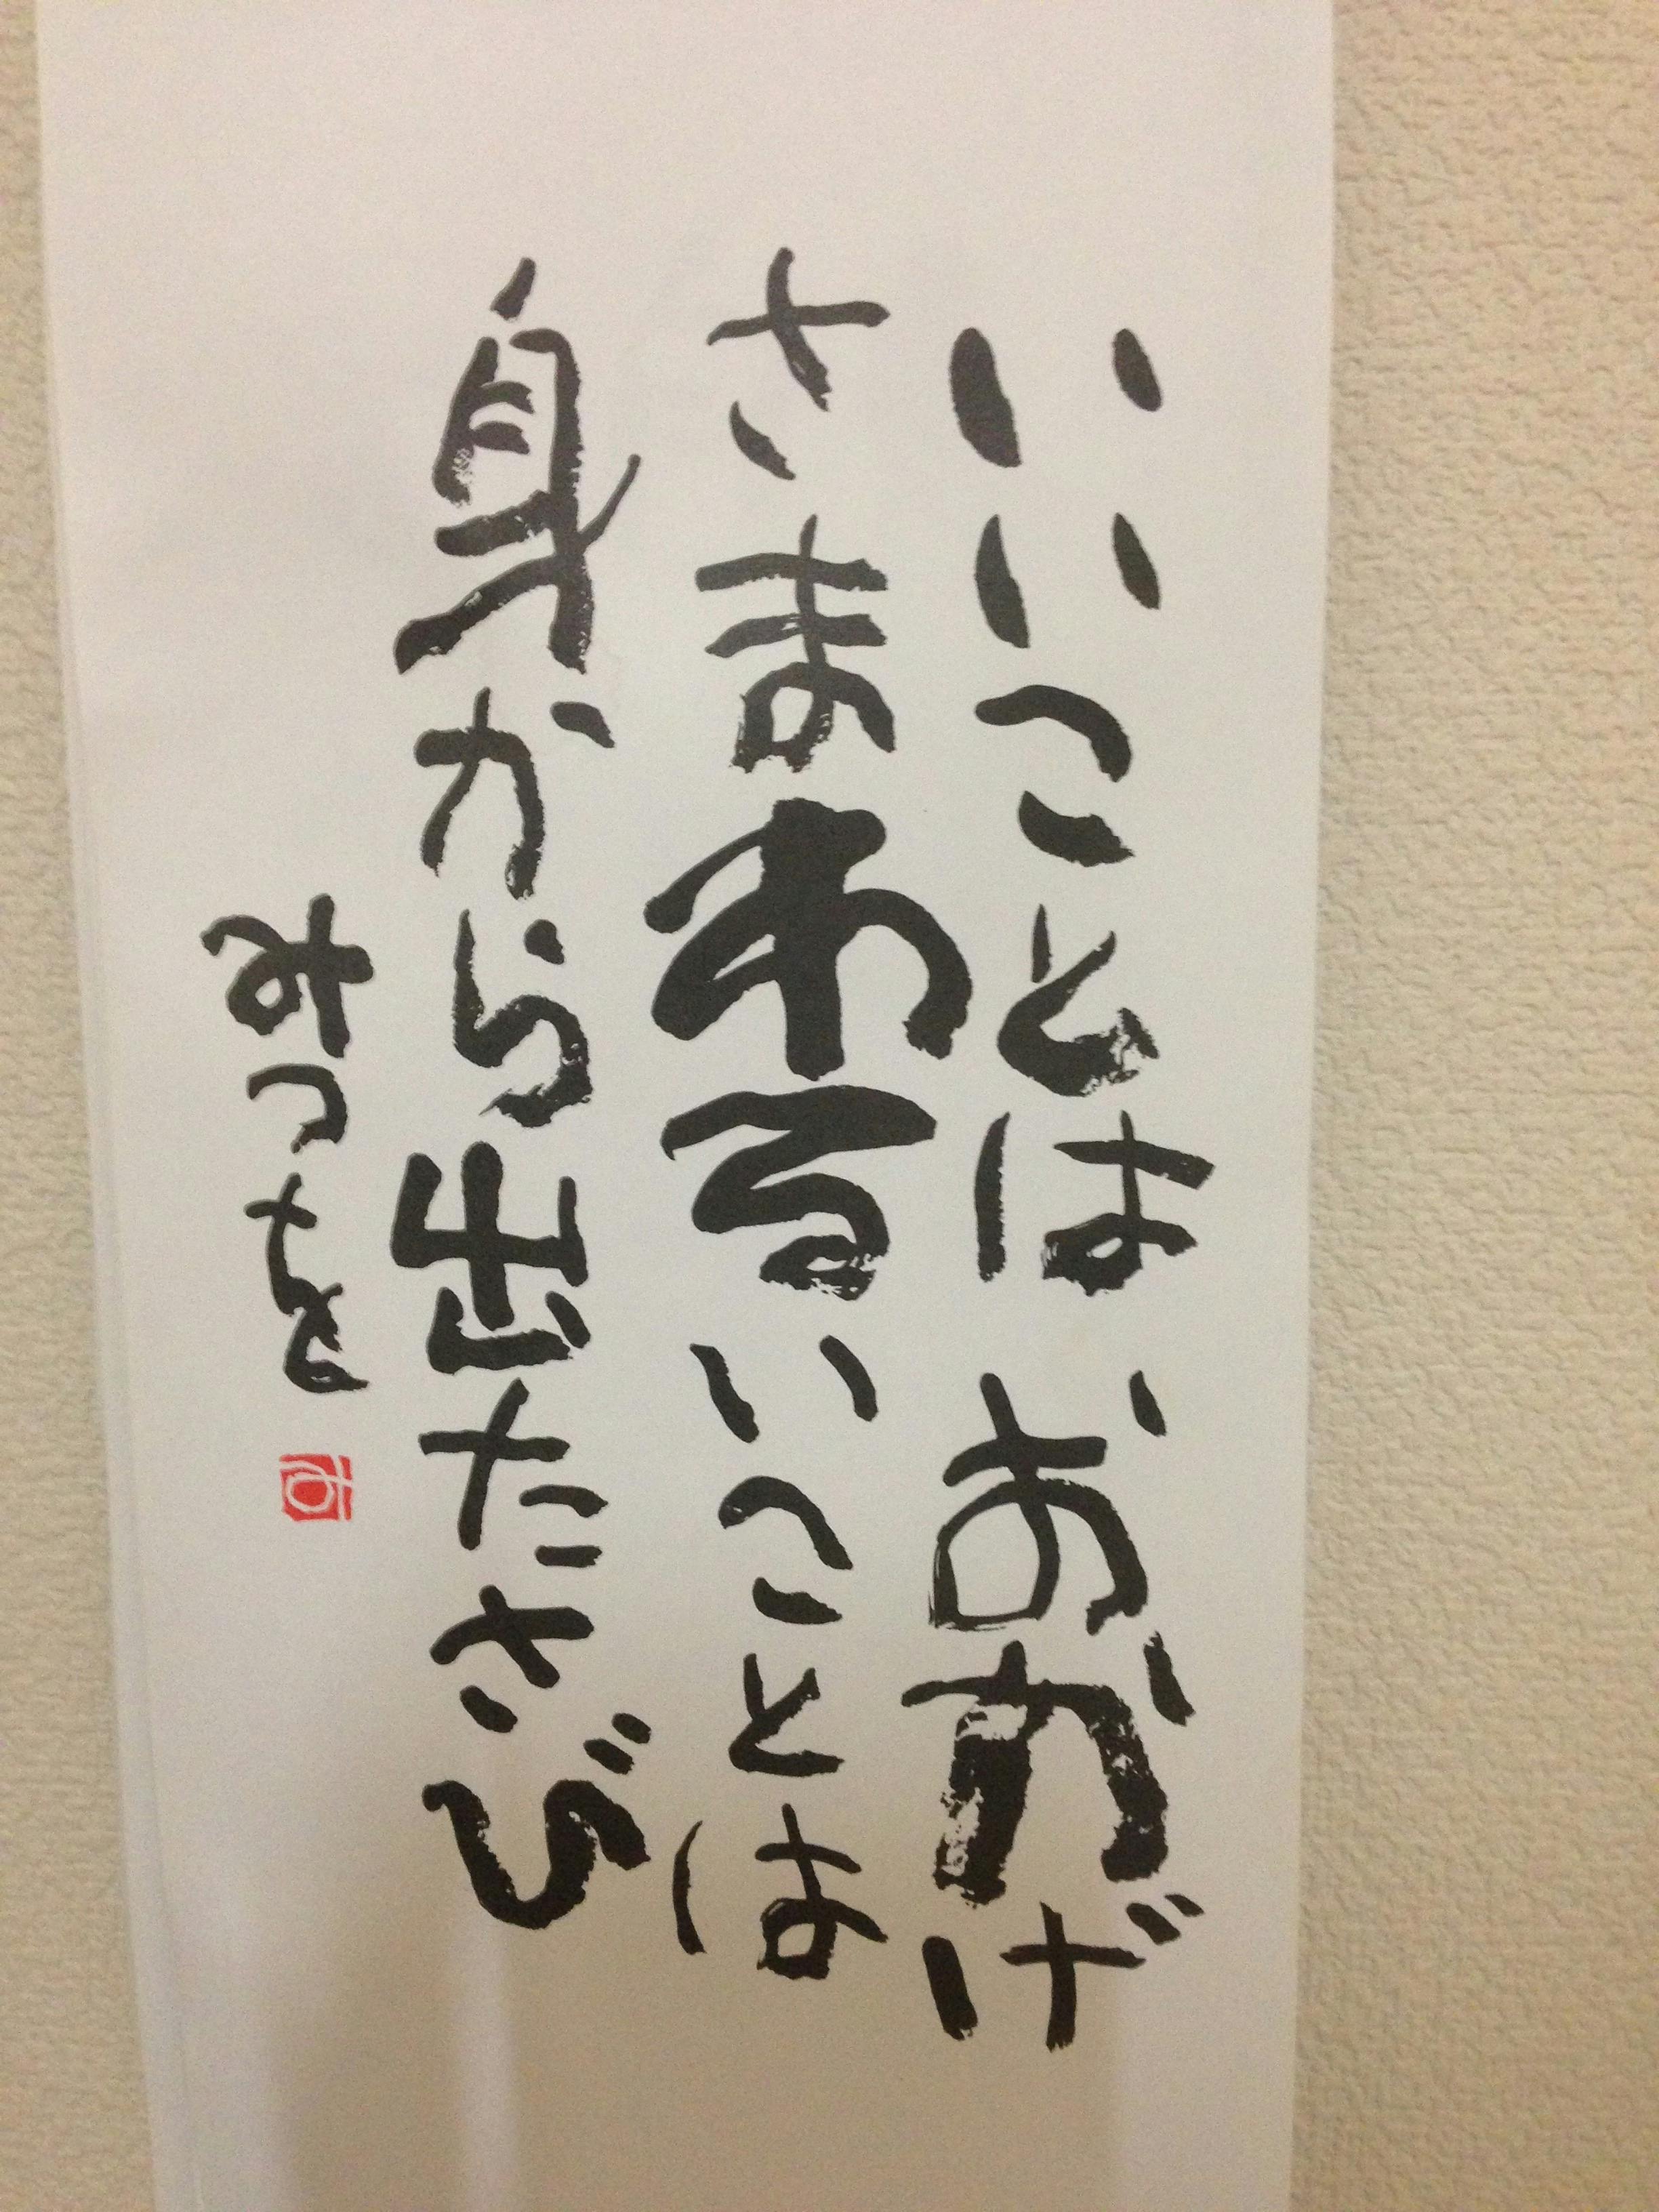 いいことはおかげ
さまわるいことは
身から出たさび
みつを
み